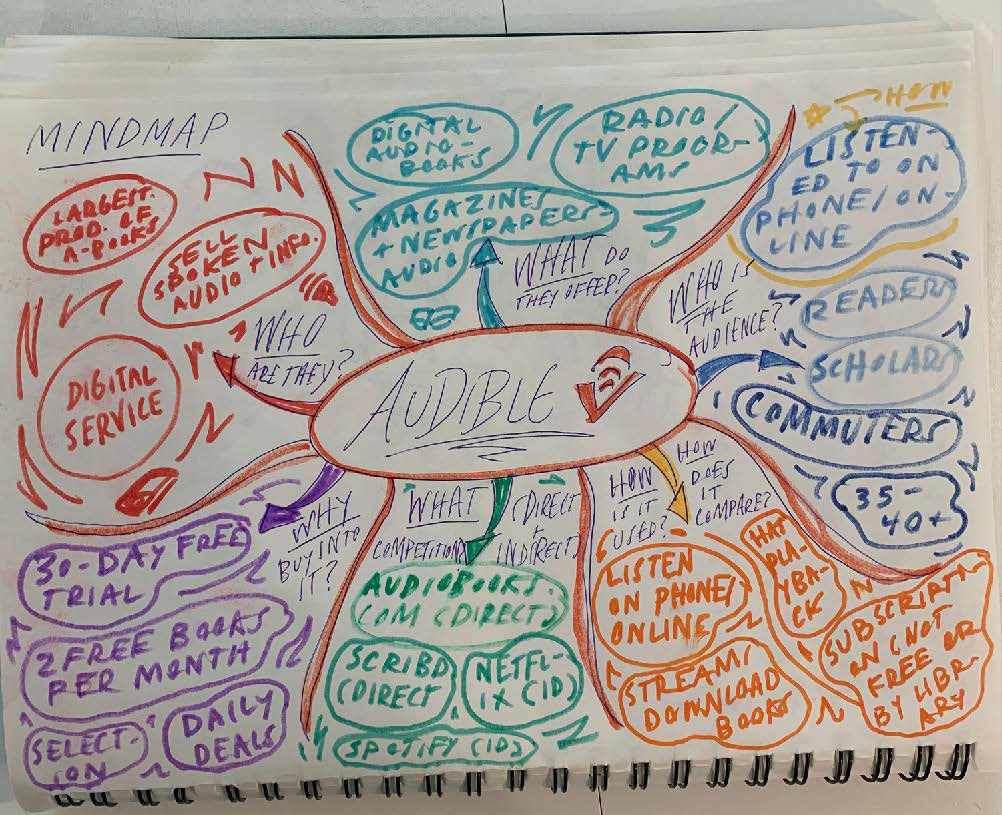 MINDMAP
LARGEST
PROD. OF
A-BOOKS
SELL
SPOKEN
AUDIO + INFO.
DIGITAL
SERVICE
WHO
ARE THEY?
DIGITAL
AUDIO-
BOOKS
RADIO/
TV PROGR-
AMS
MAGAZINES
+ NEWSPAPERS
AUDIO
WHAT DO
THEY OFFER?
HOW
LISTEN-
ED TO ON
PHONE/ON-
LINE
WHO IS
THE
AUDIENCE?
READERS
SCHOLARS
COMMUTERS
35-
40+
AUDIBLE
WHY
BUY INTO
IT?
30-DAY FREE
TRIAL
2 FREE BOOKS
PER MONTH
SELECT-
ION
DAILY
DEALS
WHAT
COMPETITION
(DIRECT
+
INDIRECT)
AUDIOBOOKS.
COM (DIRECT)
SCRIBD
(DIRECT
NETFL-
IX (ID)
SPOTIFY (ID)
HOW
IS IT
USED?
HOW
DOES
IT
COMPARE?
LISTEN
ON PHONE/
ONLINE
STREAM/
DOWNLOAD
BOOKS
HAS
PLA-
YBA-
CK
SUBSCRIPTI-
ON (NOT
FREE OR
BY LIBR-
ARY